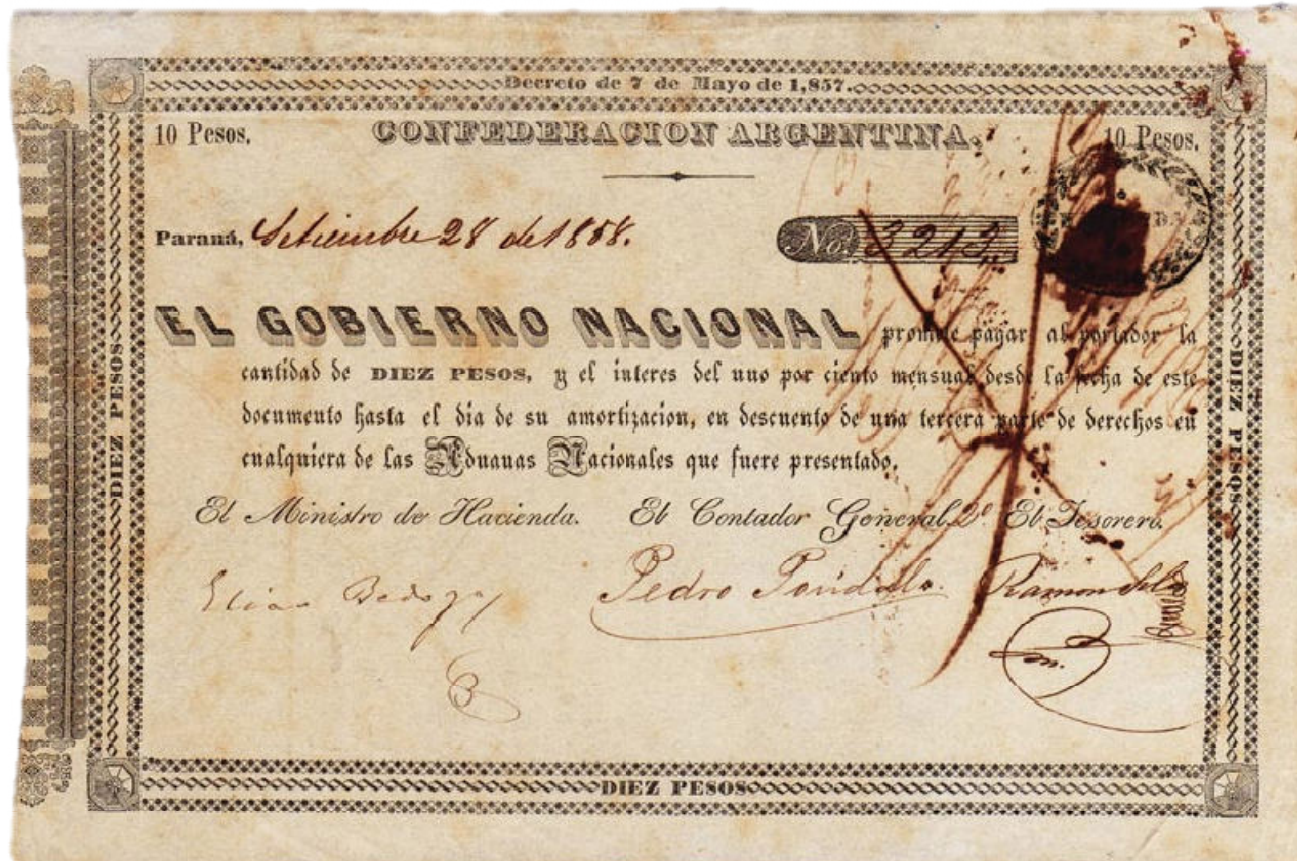 Decreto de 7 de Mayo de 1,857.
10 Pesos. CONFEDERACION ARGENTINA. 10 Pesos.
Paraná, Setiembre 28 de 1858. No. 3213
EL GOBIERNO NACIONAL promete pagar al portador la
cantidad de DIEZ PESOS, y el interes del uno por ciento mensual desde la fecha de este
documento hasta el dia de su amortizacion, en descuento de una tercera parte de derechos en
cualquiera de las Aduanas Nacionales que fuere presentado.
El Ministro de Hacienda. El Contador General 2º El Tesorero.
Elias Bedoya Pedro Ramon
DIEZ PESOS
DIEZ PESOS
DIEZ PESOS